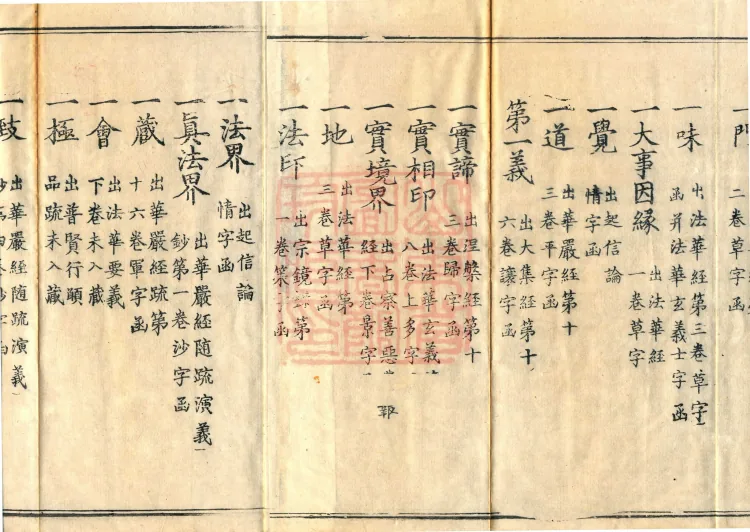 一門
二卷草字
一味
出法華經第三卷草字
函并法華玄義士字函
一大事因緣
出法華經
一卷草字
一覺
出起信論
情字函
一道
出華嚴經第十
三卷平字函
第一義
出大集經第十
六卷讓字函
一實諦
出涅槃經第十
三卷歸字函
一實相印
出法華玄義第
八卷上多字
一實境界
出占察善惡
經下卷景字
一地
出法華經第
三卷草字函
一法印
出宗鏡錄第
一卷築字函
一法界
出起信論
情字函
一眞法界
出華嚴經隨疏演義
鈔第一卷沙字函
一藏
出華嚴經疏第
十六卷軍字函
一會
出法華要義
下卷未入藏
一極
出普賢行願
品疏未入藏
一致
出華嚴經隨疏演義